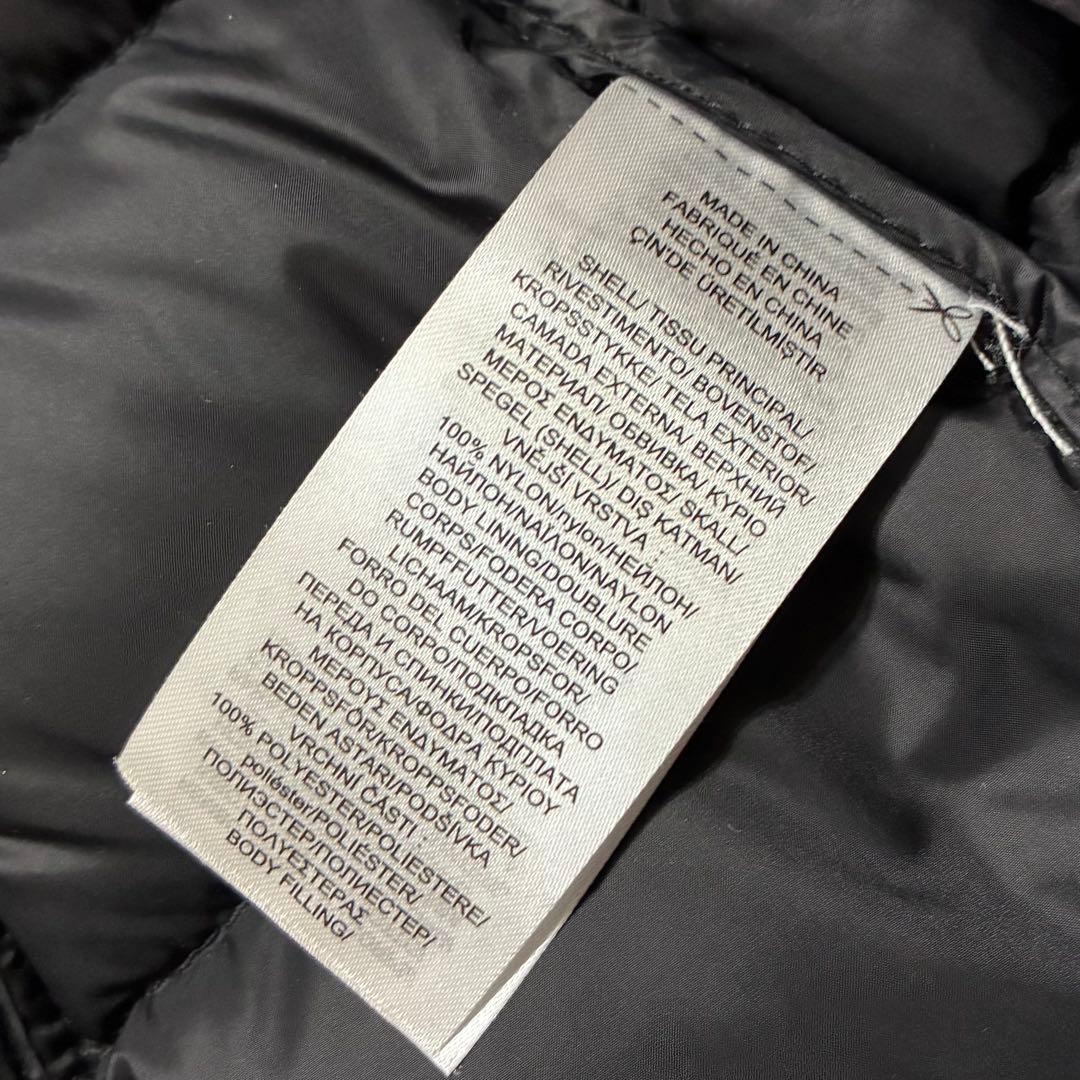 MADE IN CHINA
FABRIQUÉ EN CHINE
HECHO EN CHINA
ÇİN'DE ÜRETİLMİŞTİR
SHELL/ TISSU PRINCIPAL/
RIVESTIMENTO/ BOVENSTOF/
KROPSSTYKKE/ TELA EXTERIOR/
CAMADA EXTERNA/ ВЕРХНИЙ
МАТЕРИАЛ/ ОБВИВКА/ ΚΥΡΙΟ
ΜΕΡΟΣ ΕΝΔΥΜΑΤΟΣ/ SKALL/
SPEGEL (SHELL)/ DIŞ KATMAN/
VNĚJŠÍ VRSTVA :
100% NYLON/nylon/НЕЙЛОН/
НАЙЛОН/ΝΑΙΛΟΝ/NAYLON
BODY LINING/DOUBLURE
CORPS/FODERA CORPO/
RUMPFFUTTER/VOERING
LICHAAM/KROPSFOR/
FORRO DEL CUERPO/FORRO
DO CORPO/ПОДКЛАДКА
ПЕРЕДА И СПИНКИ/ПОДПЛАТА
НА КОРПУСА/ΦΟΔΡΑ ΚΥΡΙΟΥ
ΜΕΡΟΥΣ ΕΝΔΥΜΑΤΟΣ/
KROPPSFÓR/KROPPSFODER/
BEDEN ASTARI/PODŠÍVKA
VRCHNÍ ČÁSTI :
100% POLYESTER/POLIESTERE/
poliéster/POLIÉSTER/
ПОЛИЭСТЕР/ПОЛИЕСТЕР/
ΠΟΛΥΕΣΤΕΡΑΣ
BODY FILLING/